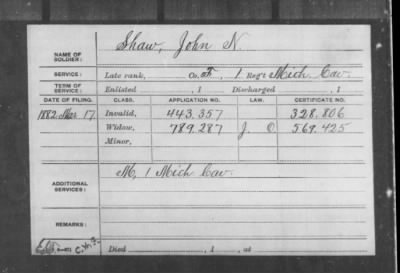 NAME OF SOLDIER: Shaw, John N.
SERVICE: Late rank, Co. 1 Reg't Mich. Cav.
TERM OF SERVICE: Enlisted , 1 Discharged , 1
DATE OF FILING. CLASS. APPLICATION NO. LAW. CERTIFICATE NO.
1882 Mar 17. Invalid, 443.357 328.806
Widow, 789.287 J. O. 569.425
Minor,
ADDITIONAL SERVICES: M, 1 Mich Cav.
REMARKS:
Died , 1 , at